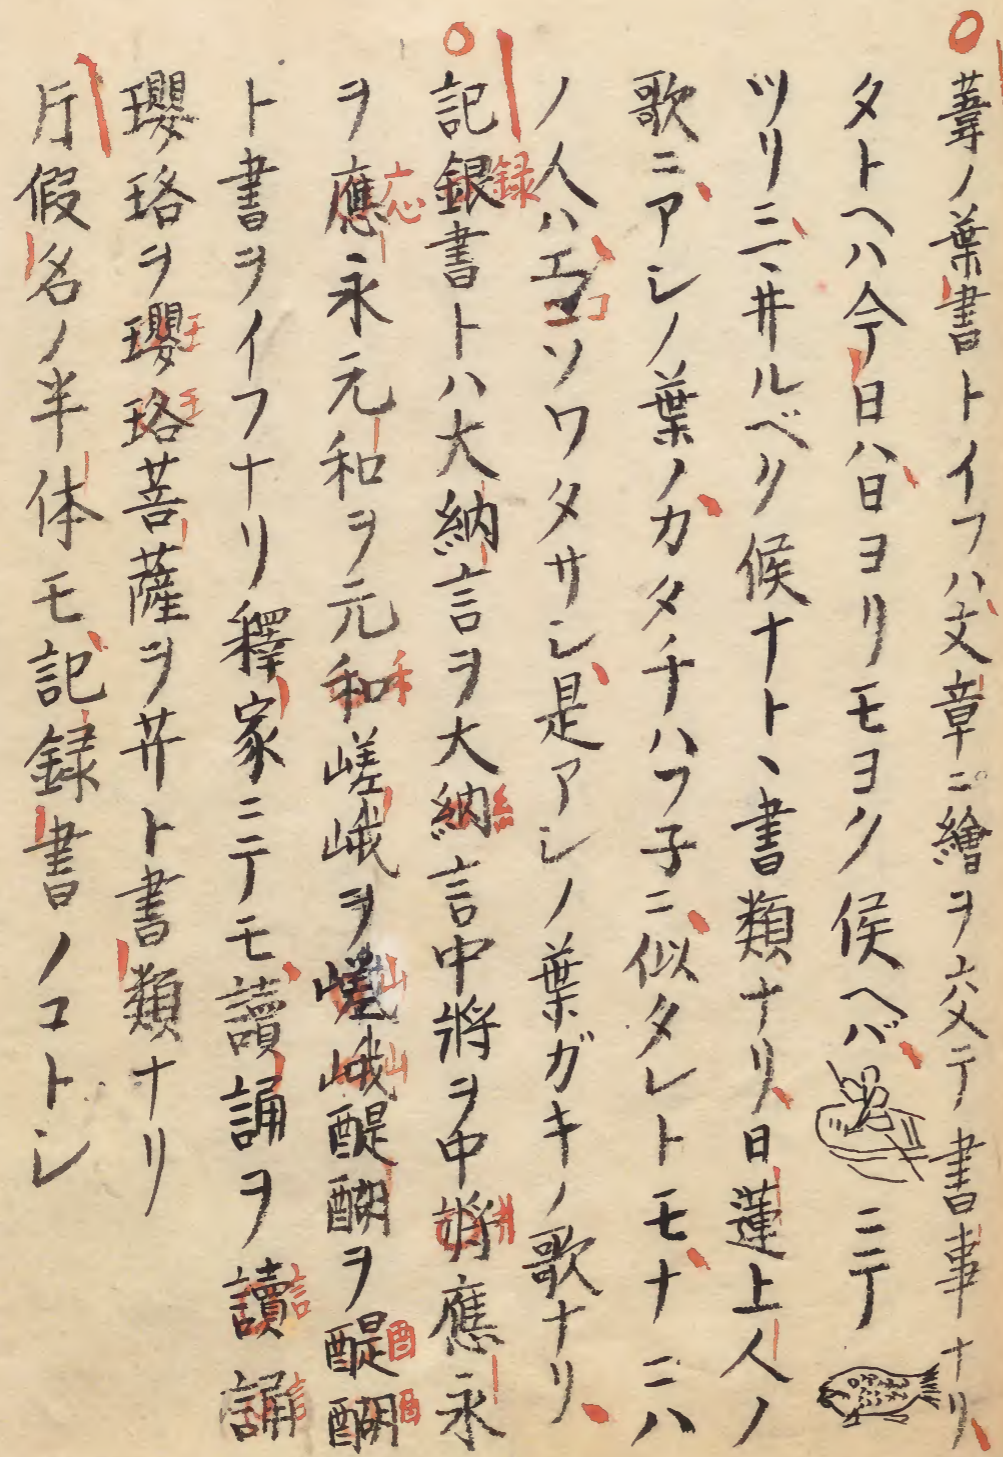 ○葦ノ葉書トイフハ文章ニ繪ヲ交テ書事ナリ
タトヘハ今日ハ日ヨリモヨク候ヘバ ニテ
ツリニ井ルベク候ナトヽ書類ナリ日蓮上人ノ
歌ニアシノ葉ノカタチハフ子ニ似タレトモナニハ
ノ人ハエコソワタサシ是アシノ葉ガキノ歌ナリ
コ
○記銀書トハ大納言ヲ大納言中將ヲ中將應永
録 糸 丬
ヲ應永元和ヲ元和嵯峨ヲ嵯峨醍醐ヲ醍醐
応 禾 山 山 酉 酉
ト書ヲイフナリ釋家ニテモ讀誦ヲ讀誦
言 言
瓔珞ヲ瓔珞菩薩ヲ菩ト書類ナリ
王 王
片假名ノ半体モ記録書ノコトシ